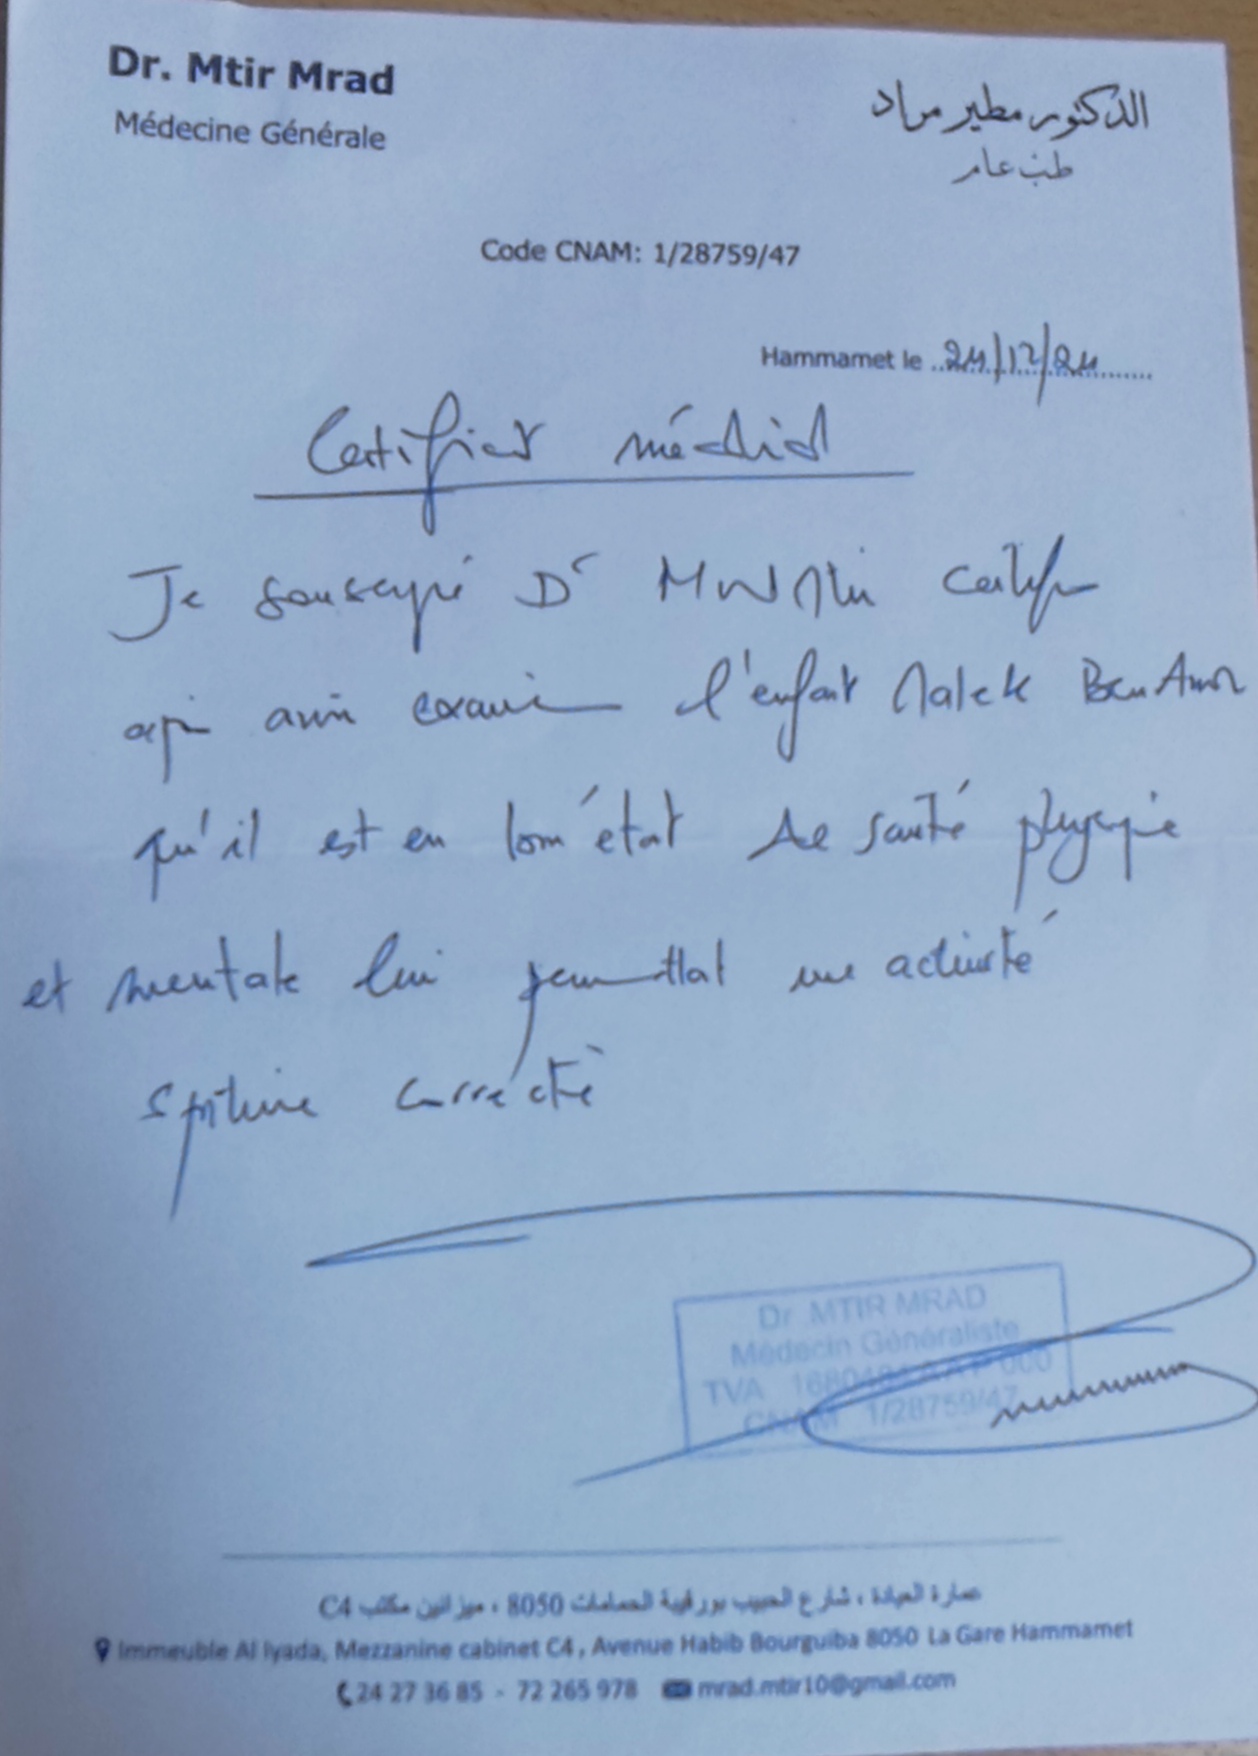 Dr. Mtir Mrad
Médecine Générale
الدكتور مطير مراد
طب عام
Code CNAM: 1/28759/47
Hammamet le 24/12/24
Certificat médical
Je soussigné Dr certifie
avoir examiné l'enfant Malek Ben Amor
qu'il est en bon état de santé physique
et mentale lui permettant une activité
sportive correcte
Dr MTIR MRAD
Médecin Généraliste
TVA 000
CNAM 1/28759/47
عمارة العيادة ، شارع الحبيب بورقيبة الحمامات 8050 ، ميزانين مكتب C4
Immeuble Al Iyada, Mezzanine cabinet C4, Avenue Habib Bourguiba 8050 La Gare Hammamet
24 27 36 85 - 72 265 978 mrad.mtir10@gmail.com